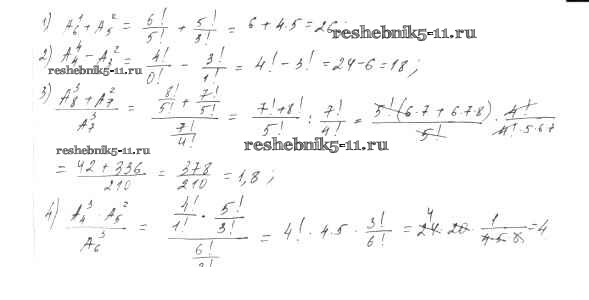 1) A₆¹ + A₅² = 6!/5! + 5!/3! = 6 + 4·5 = 26;
reshebnik5-11.ru
2) A₄⁴ - A₃² = 4!/0! - 3!/1! = 4! - 3! = 24 - 6 = 18;
reshebnik5-11.ru
3) (A₈³ + A₇²)/A₇³ = (8!/5! + 7!/5!)/(7!/4!) = (7! + 8!)/5! : 7!/4! = 5!(6·7 + 6·7·8)/5! · 4!/(4!·5·6·7)
reshebnik5-11.ru
reshebnik5-11.ru
= (42 + 336)/210 = 378/210 = 1,8;
4) (A₄³ · A₅²)/A₆³ = (4!/1! · 5!/3!)/(6!/3!) = 4! · 4·5 · 3!/6! = 24 · 20 · 1/(4·5·6) = 4